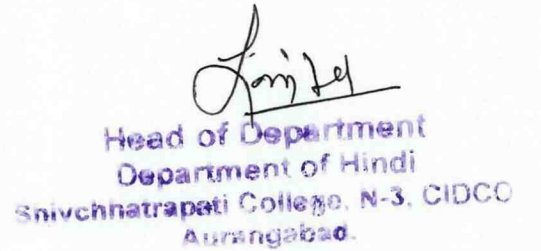 Head of Department
Department of Hindi
Shivchhatrapati College, N-3, CIDCO
Aurangabad.